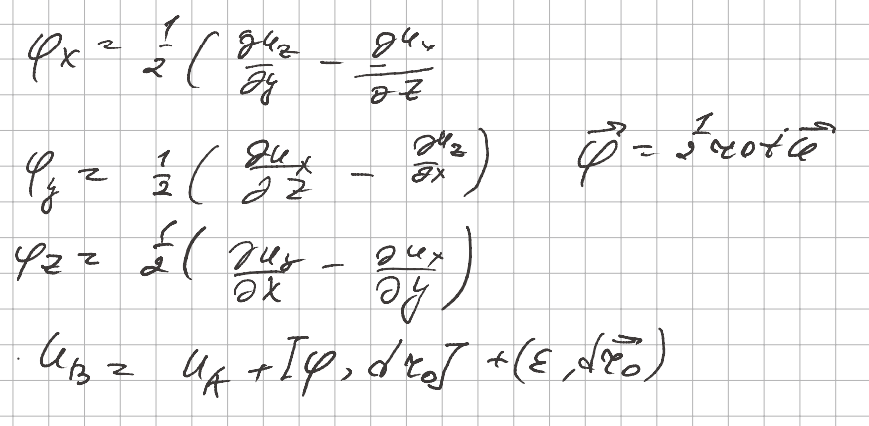 φx = 1/2 ( ∂u_z/∂y − ∂u_y/∂z
φ_y = 1/2 ( ∂u_x/∂z − ∂u_z/∂x )
φ⃗ = 1/2 rot u⃗
φ_z = 1/2 ( ∂u_y/∂x − ∂u_x/∂y )
u_B = u_A + [φ, dr_0] + (ε, dr⃗_0)